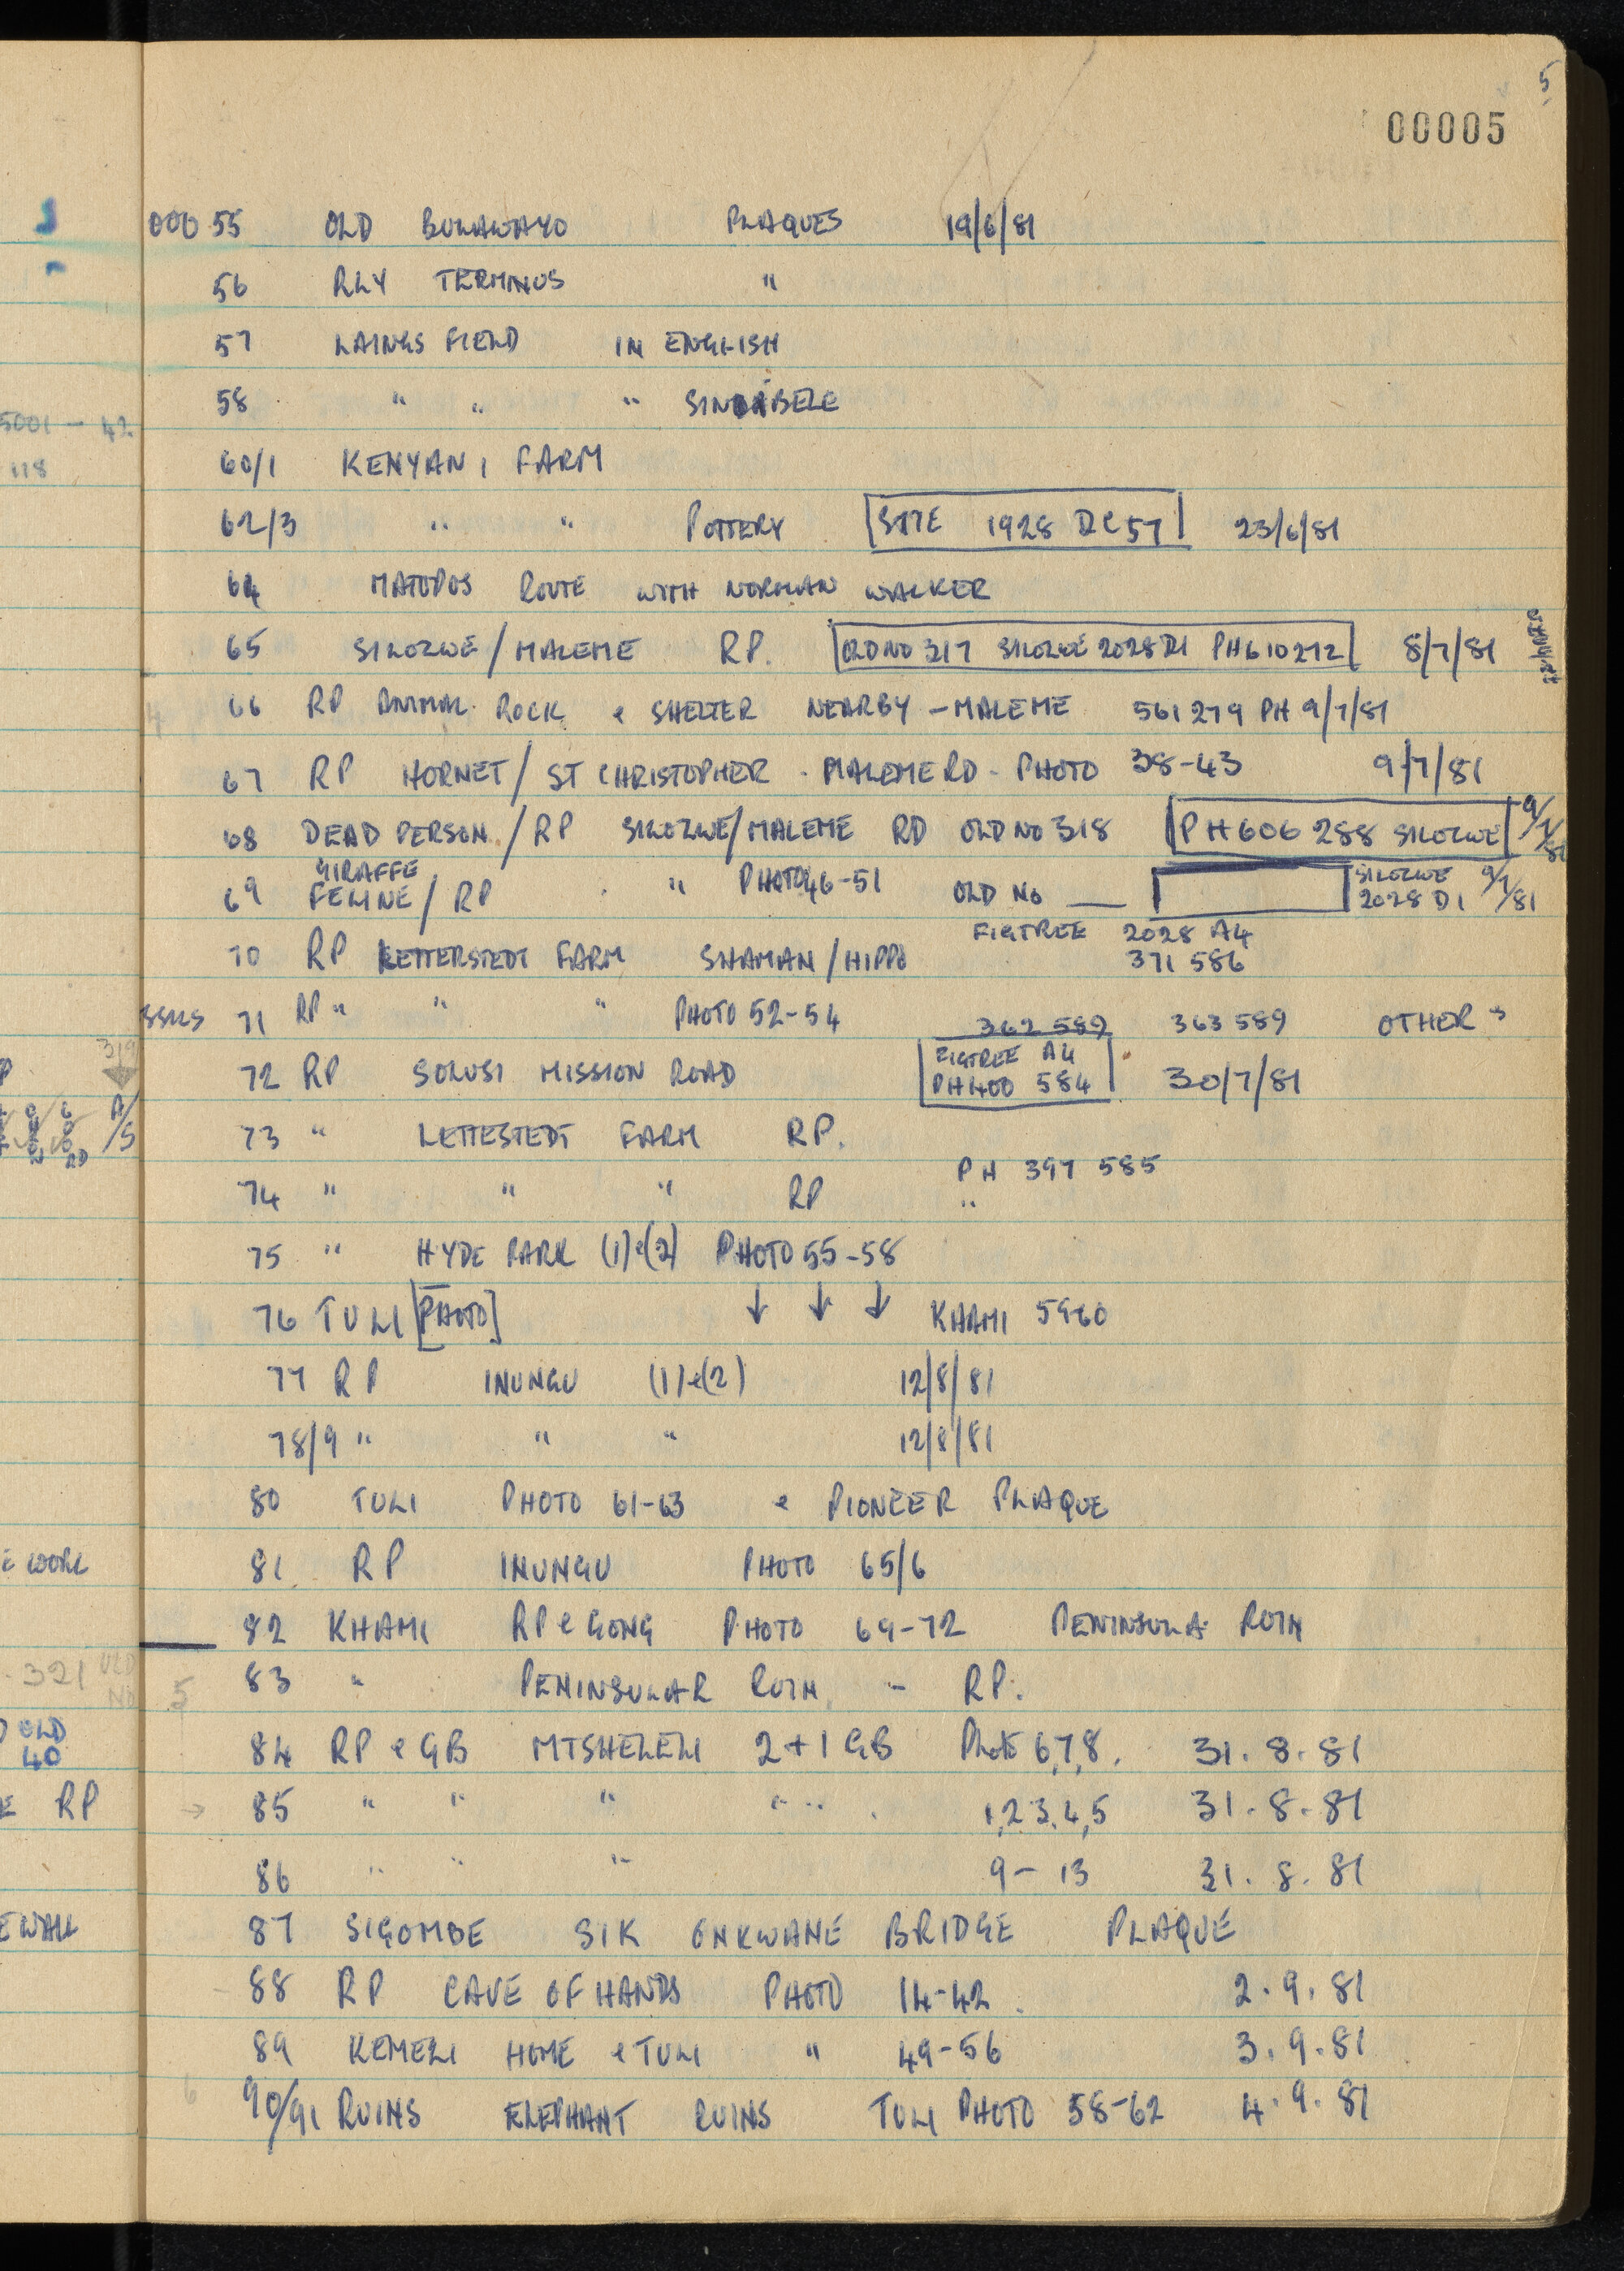 5
00005
00055 OLD BULAWAYO PLAQUES 19/6/81
56 RLY TERMINUS "
57 LAINGS FIELD IN ENGLISH
58 " " " SINDIBELE
60/1 KENYANI FARM
62/3 " " POTTERY SITE 1928 DC 57 23/6/81
64 MATOPOS ROUTE WITH NORMAN WALKER
65 SILOZWE/MALEME RP. OLD NO 317 SILOZWE 2028 D1 PH 610272 8/7/81
66 RP ANIMAL ROCK & SHELTER NEARBY - MALEME 561279 PH 9/7/81
67 RP HORNET/ST CHRISTOPHER - MALEME RD - PHOTO 38-43 9/7/81
68 DEAD PERSON/RP SILOZWE/MALEME RD OLD NO 318 PH 606 288 SILOZWE 9/7/81
GIRAFFE
69 FELINE/RP " PHOTO 46-51 OLD NO — SILOZWE 2028 D1 9/7/81
FIGTREE 2028 A4
70 RP LETTERSTEDT FARM SHAMAN/HIPPO 371 586
71 RP " " " PHOTO 52-54 362 589 363 589 OTHER S
72 RP SOLUSI MISSION ROAD FIGTREE A4 PH 400 584 30/7/81
73 " LETTESTEDT FARM RP.
PH 397 585
74 " " " RP "
75 " HYDE PARK (1)&(2) PHOTO 55-58
76 TULI [PHOTO] ↓ ↓ ↓ KHAMI 5960
77 RP INUNGU (1)&(2) 12/8/81
78/9 " " " 12/8/81
80 TULI PHOTO 61-63 & PIONEER PLAQUE
81 RP INUNGU PHOTO 65/6
82 KHAMI RP & GONG PHOTO 69-72 PENINSULA RUIN
83 " PENINSULAR RUIN - RP.
84 RP & GB MTSHELELI 2+1 GB Photo 6,7,8. 31.8.81
85 " " " " " 1,2,3,4,5 31.8.81
86 " " " 9-13 31.8.81
87 SIGOMBE SIK ONKWANE BRIDGE PLAQUE
88 RP CAVE OF HANDS PHOTO 14-42. 2.9.81
89 KEMELI HOME & TULI " 49-56 3.9.81
90/91 RUINS ELEPHANT RUINS TULI PHOTO 58-62 4.9.81